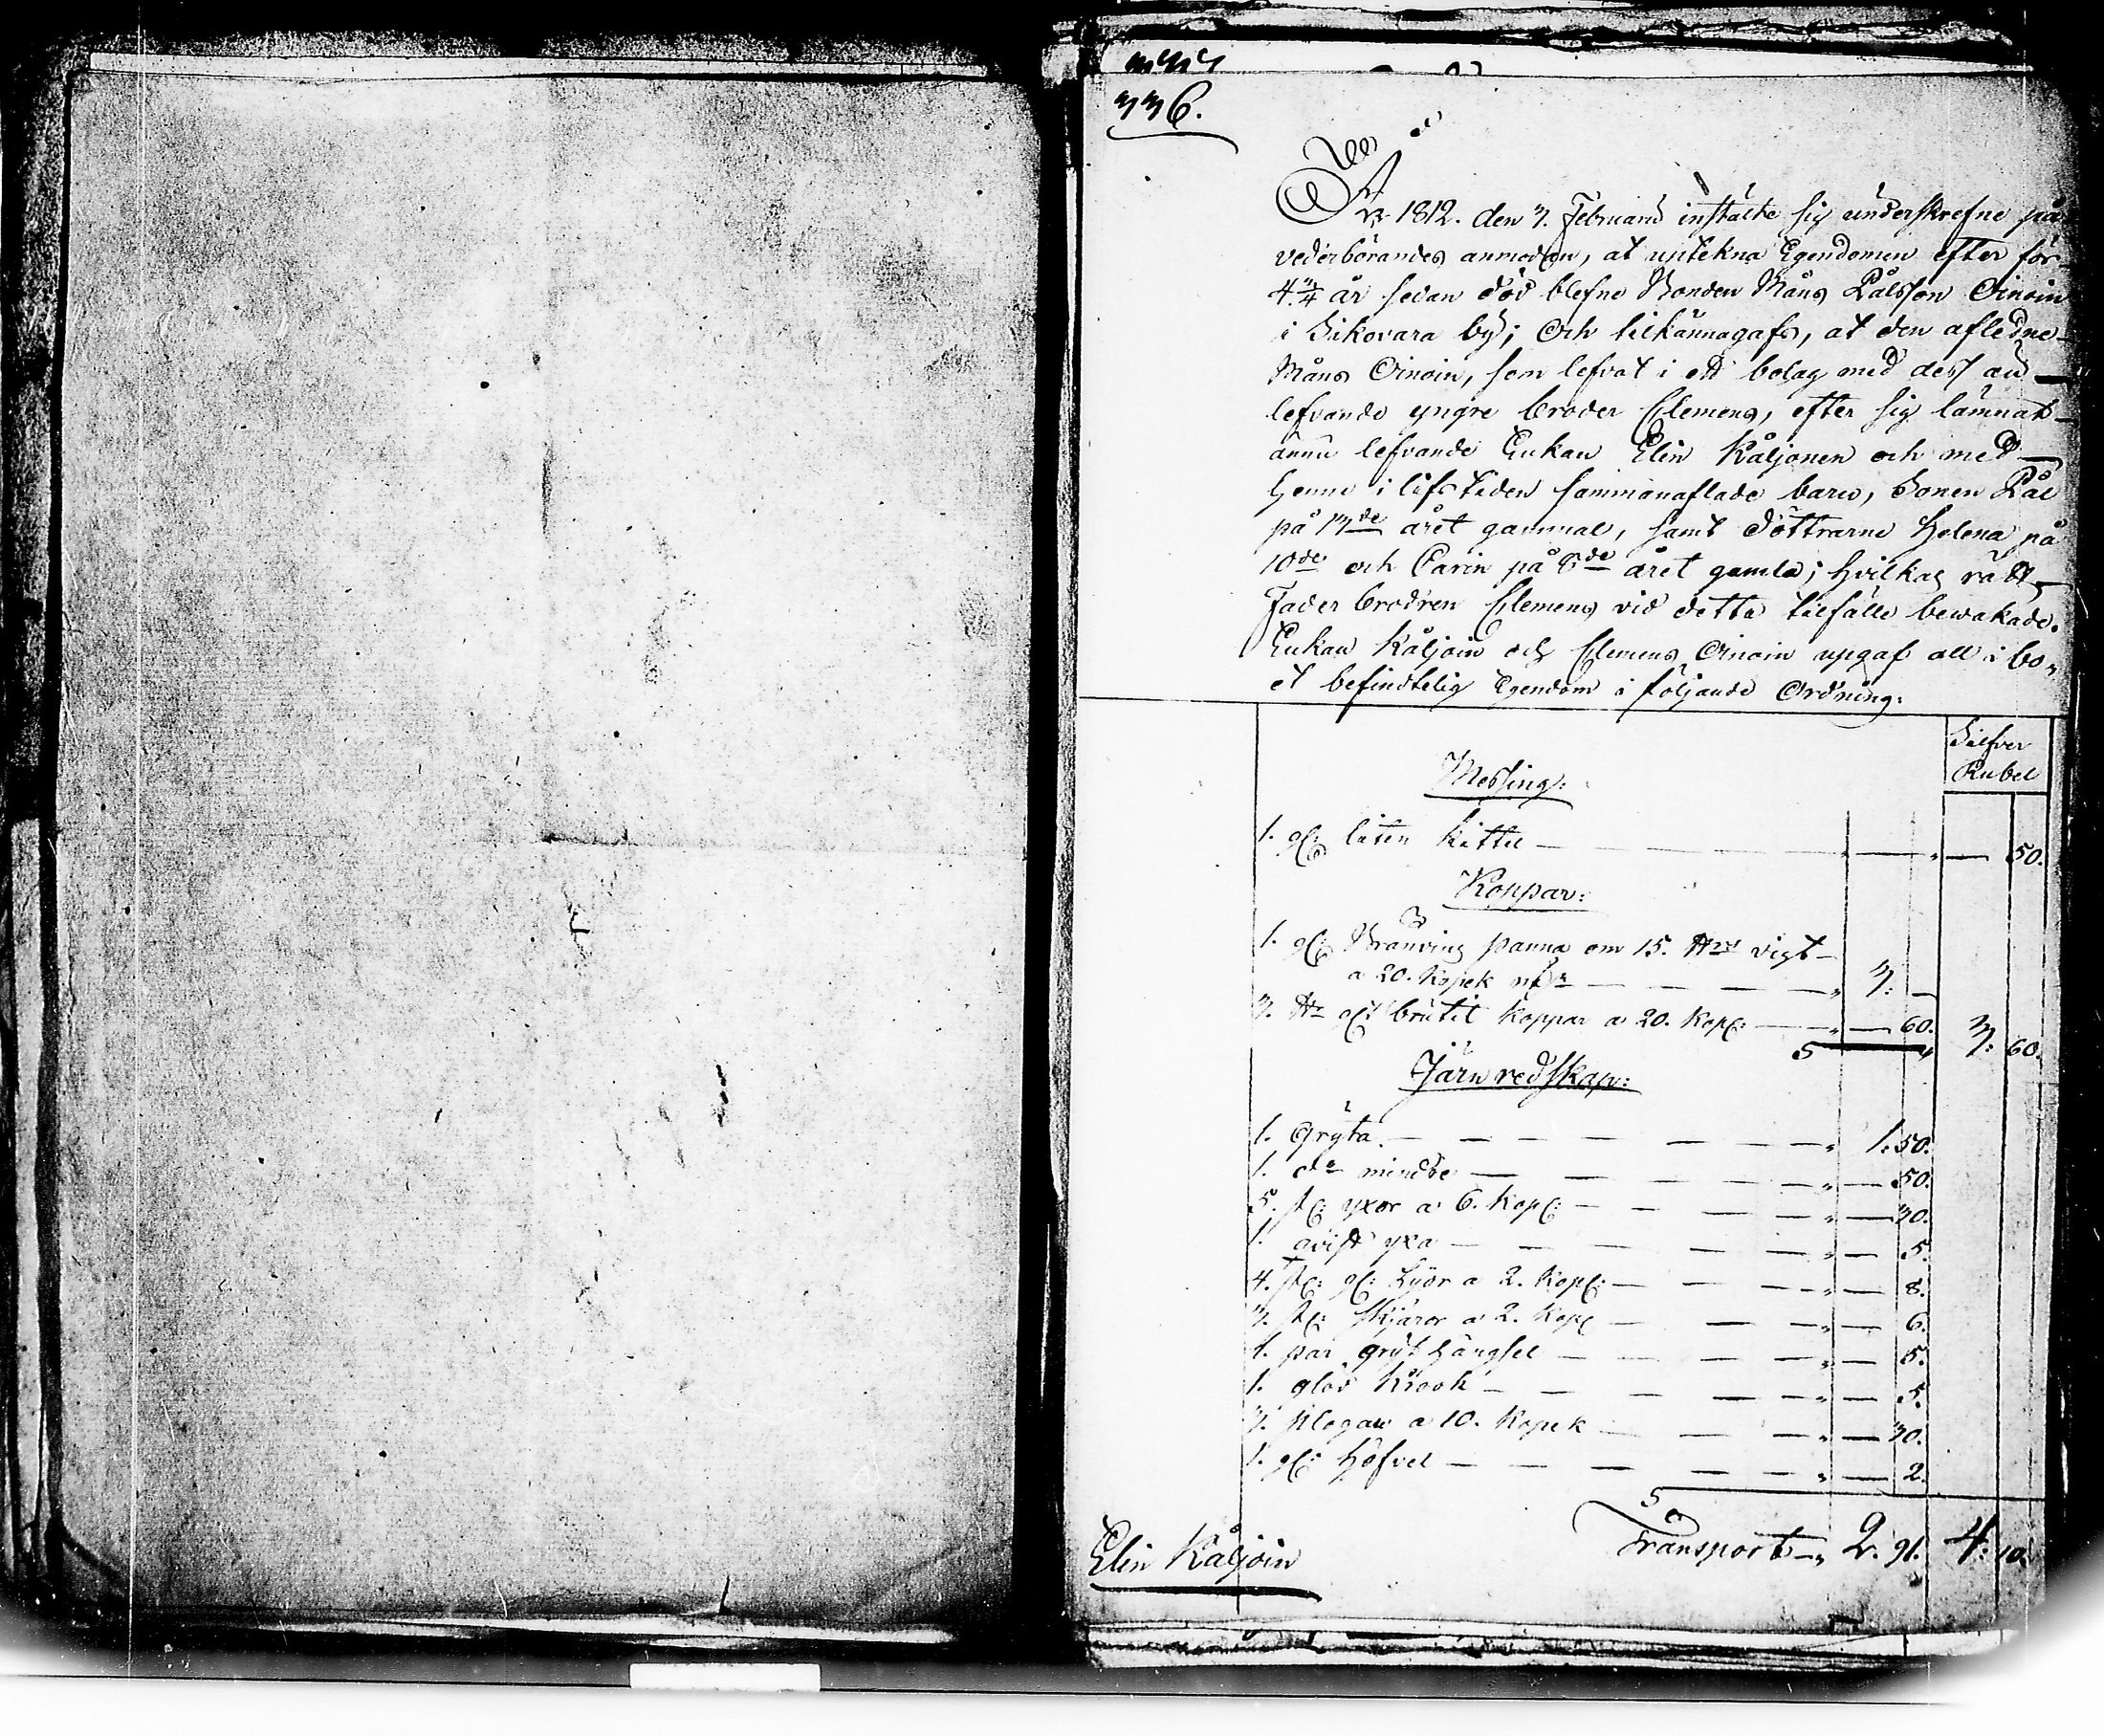 336.
År 1812. den 3. Februarii instälte sig underskrefne på
vederbörandes anmodan, at uptekna Egendomen efter för
4 3/4 år sedan död blefne Bonden Måns Pålsson Oinoin
i Sikovara by; Och tilkännagafs, at den afledne
Måns Oinoin, som lefvat i ett bolag med dess än
lefvande yngre broder Clemens, efter sig lämnat
ännu lefvande Enkan Elin Käljonen och med
henne i lifstiden sammanaflade barn, Sonen Pål
på 13de året gammal, samt döttrarne Helena på
10de och Carin på 8de året gamla; hvilkas rätt
Fader brodren Clemens vid detta tilfälle bewakade.
Enkan Käljoin och Clemens Oinoin upgaf all i bo,
et befindtelig Egendom i följande Ordning:
Silfver
Rubel
Messing:
1. gl: liten kittel — " — " — 50.
Koppar:
1. gl: Bränvins panna om 15. vigt
a 20. Kopek — " 3: —
3. gl: brutit koppar a 20. Kop: — " — 60. 3: 60.
Järn redskap:
1. Gryta — " 1: 50.
1. do mindre — " — 50.
5. st: yxor a 6. Kop: — " — 30.
1. qvist yxa — " — 5.
4. st: gl: Lijor a 2. Kop: — " — 8.
3. st: Skjäror a 2. Kop — " — 6.
1. par gryt hängsel — " — 5.
1. glöd krook — " — 5.
3. plogar a 10. Kopek — " — 30.
1. gl: höfvel — " — 2.
Transport " 2. 91. 4: 10.
Elin Käljoin